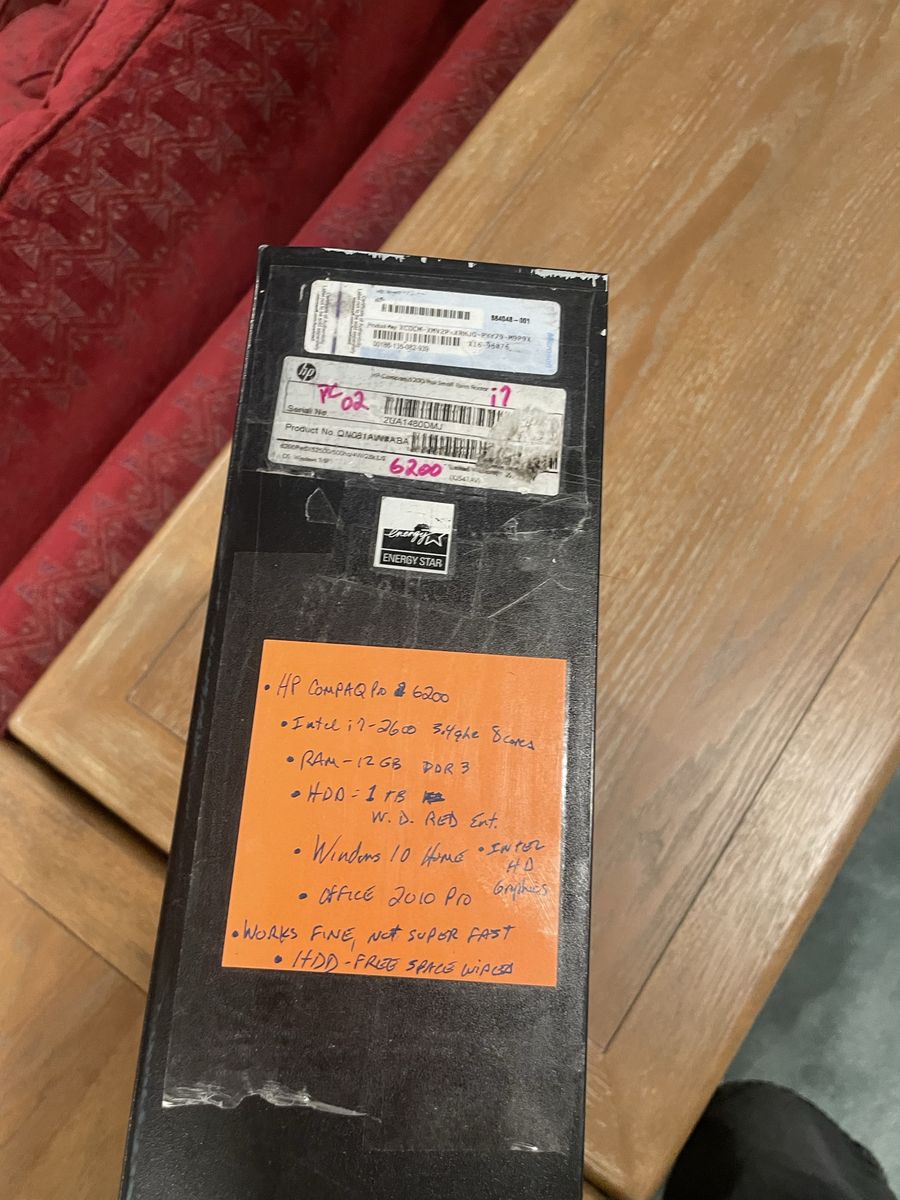 564048-001
Product Key:
00186-135-082-939
X16-96076
Microsoft
hp
HP Compaq 6200 Pro Small Form Factor
PC 02
i7
Serial No
2UA1480DMJ
Product No. QN081AW#ABA
6200
ENERGY STAR
• HP COMPAQ Pro 6200
• Intel i7-2600 3.4ghz 8 cores
• RAM-12 GB DDR3
• HDD = 1 TB
W.D. RED Ent.
• Windows 10 Home
• INTEL
HD
Graphics
• OFFICE 2010 Pro
• WORKS FINE, NOT SUPER FAST
• HDD-FREE SPACE WIPED